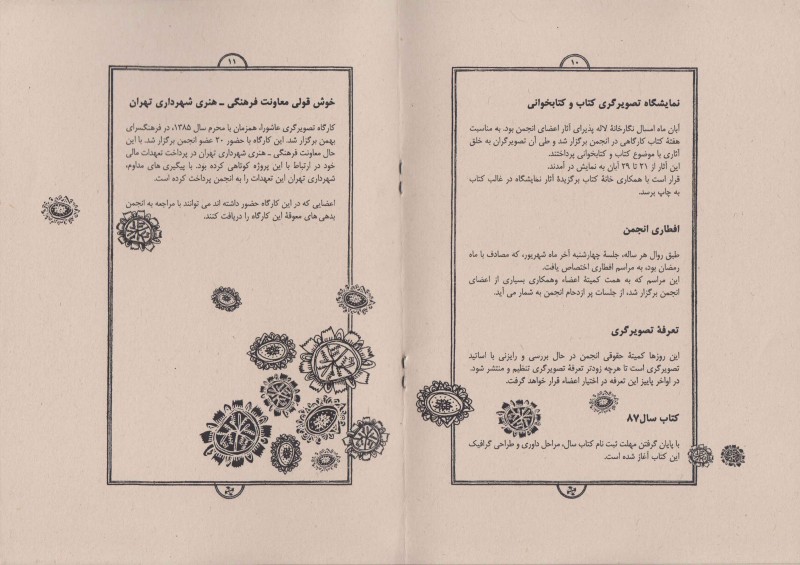 ۱۰
نمایشگاه تصویرگری کتاب و کتابخوانی
آبان ماه امسال نگارخانهٔ لاله پذیرای آثار اعضای انجمن بود. به مناسبت
هفتهٔ کتاب کارگاهی در انجمن برگزار شد و طی آن تصویرگران به خلق
آثاری با موضوع کتاب و کتابخوانی پرداختند.
این آثار از ۲۱ تا ۲۹ آبان به نمایش در آمدند.
قرار است با همکاری خانهٔ کتاب برگزیدهٔ آثار نمایشگاه در غالب کتاب
به چاپ برسد.
افطاری انجمن
طبق روال هر ساله، جلسهٔ چهارشنبه آخر ماه شهریور، که مصادف با ماه
رمضان بود، به مراسم افطاری اختصاص یافت.
این مراسم که به همت کمیتهٔ اعضاء وهمکاری بسیاری از اعضای
انجمن برگزار شد، از جلسات پر ازدحام انجمن به شمار می آید.
تعرفهٔ تصویرگری
این روزها کمیتهٔ حقوقی انجمن در حال بررسی و رایزنی با اساتید
تصویرگری است تا هرچه زودتر تعرفهٔ تصویرگری تنظیم و منتشر شود.
در اواخر پاییز این تعرفه در اختیار اعضاء قرار خواهد گرفت.
کتاب سال۸۷
با پایان گرفتن مهلت ثبت نام کتاب سال، مراحل داوری و طراحی گرافیک
این کتاب آغاز شده است.
۱۱
خوش قولی معاونت فرهنگی ـ هنری شهرداری تهران
کارگاه تصویرگری عاشورا، همزمان با محرم سال ۱۳۸۵، در فرهنگسرای
بهمن برگزار شد. این کارگاه با حضور ۲۰ عضو انجمن برگزار شد. با این
حال معاونت فرهنگی ـ هنری شهرداری تهران در پرداخت تعهدات مالی
خود در ارتباط با این پروژه کوتاهی کرده بود. با پیگیری های مداوم،
شهرداری تهران این تعهدات را به انجمن پرداخت کرده است.
اعضایی که در این کارگاه حضور داشته اند می توانند با مراجعه به انجمن
بدهی های معوقهٔ این کارگاه را دریافت کنند.